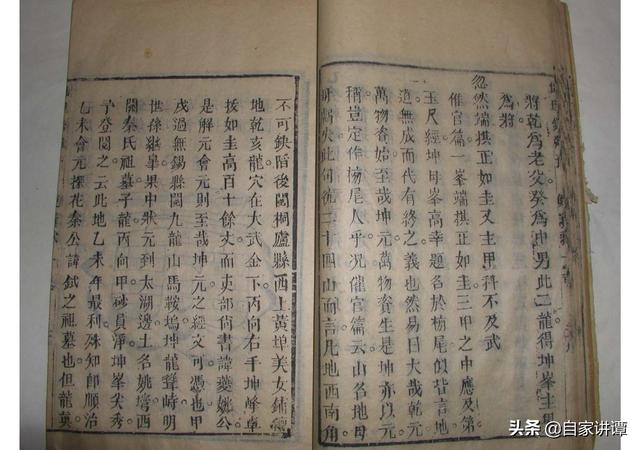 將乾為老父癸為中男此二龍得坤峯主甲
為將
忽然端拱正如圭又主甲科不及武
催官篇一峯端拱正如圭三甲之中應及第
玉尺經坤母峯高幸題名於榜尾似皆言地
道無成而代有終之義也然易曰大哉乾元
萬物資始至哉坤元萬物資生是坤亦以元
稱豈定作榜尾人乎况催官篇云山名地母
失此何統二十四山而言凡地西南角
不可缺陷後閱桐廬縣西上黃埠美女鋪氈
地乾亥龍穴在大武企下丙向右千坤峰卓
拔如圭高百十餘丈而吏部尚書諱夔姚公
是解元會元則至哉坤元之經文可憑也甲
戌過無錫縣閱九龍山馬鞍塢坤龍聳峙明
世孫繼臯果中狀元到太湖邊土名姚塆西
關秦氏祖墓子龍丙向甲砂員淨坤峯尖秀
予登閱之云此地乙未年最利殊知即順治
乙未會元探花秦公諱鉽之祖墓也但龍真
头条 @自家讲谭